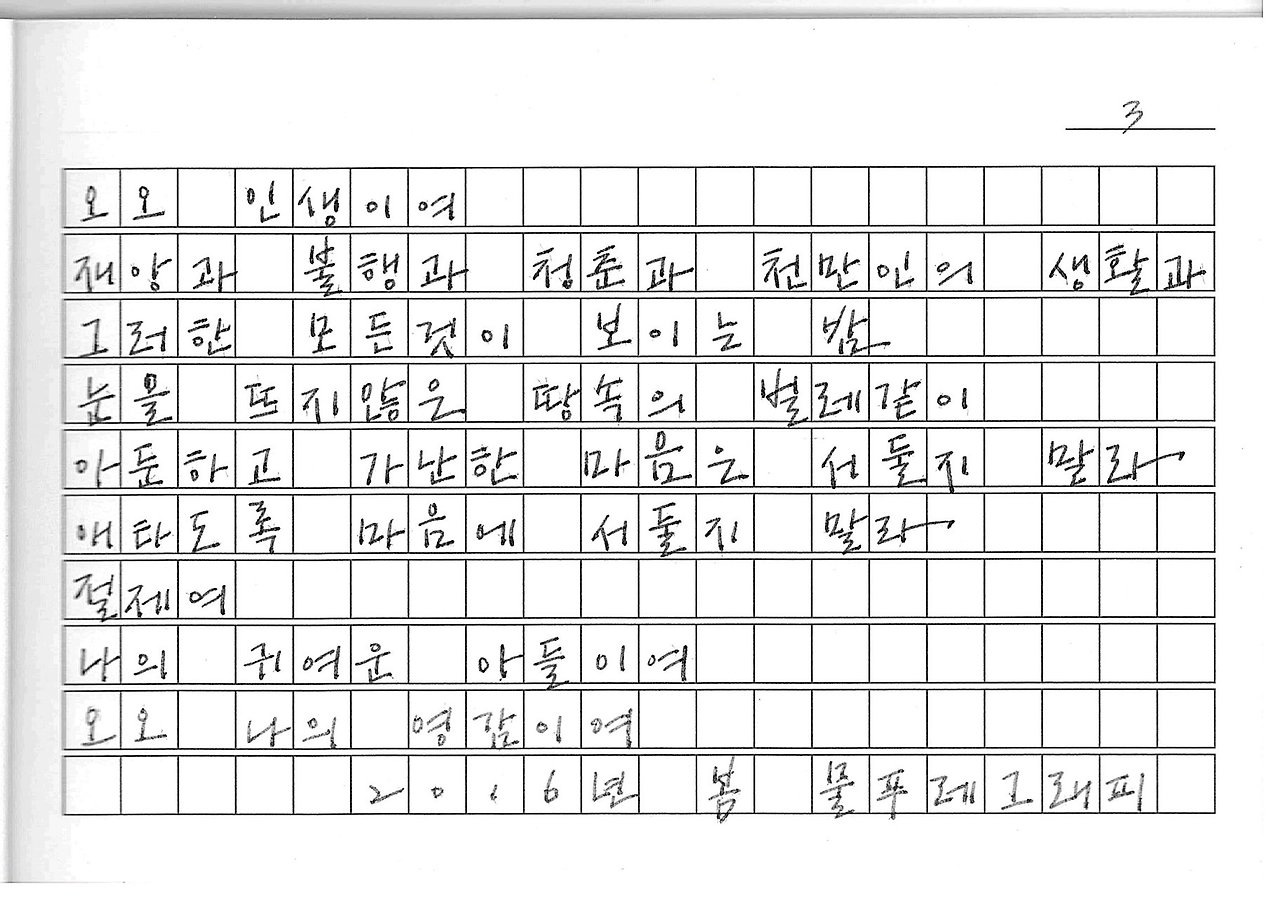 3
오오 인생이여
재앙과 불행과 청춘과 천만인의 생활과
그러한 모든것이 보이는 밤
눈을 뜨지않은 땅속의 벌레같이
아둔하고 가난한 마음은 서둘지 말라
애타도록 마음에 서둘지 말라
절제여
나의 귀여운 아들이여
오오 나의 영감이여
2016년 봄 물푸레그래피